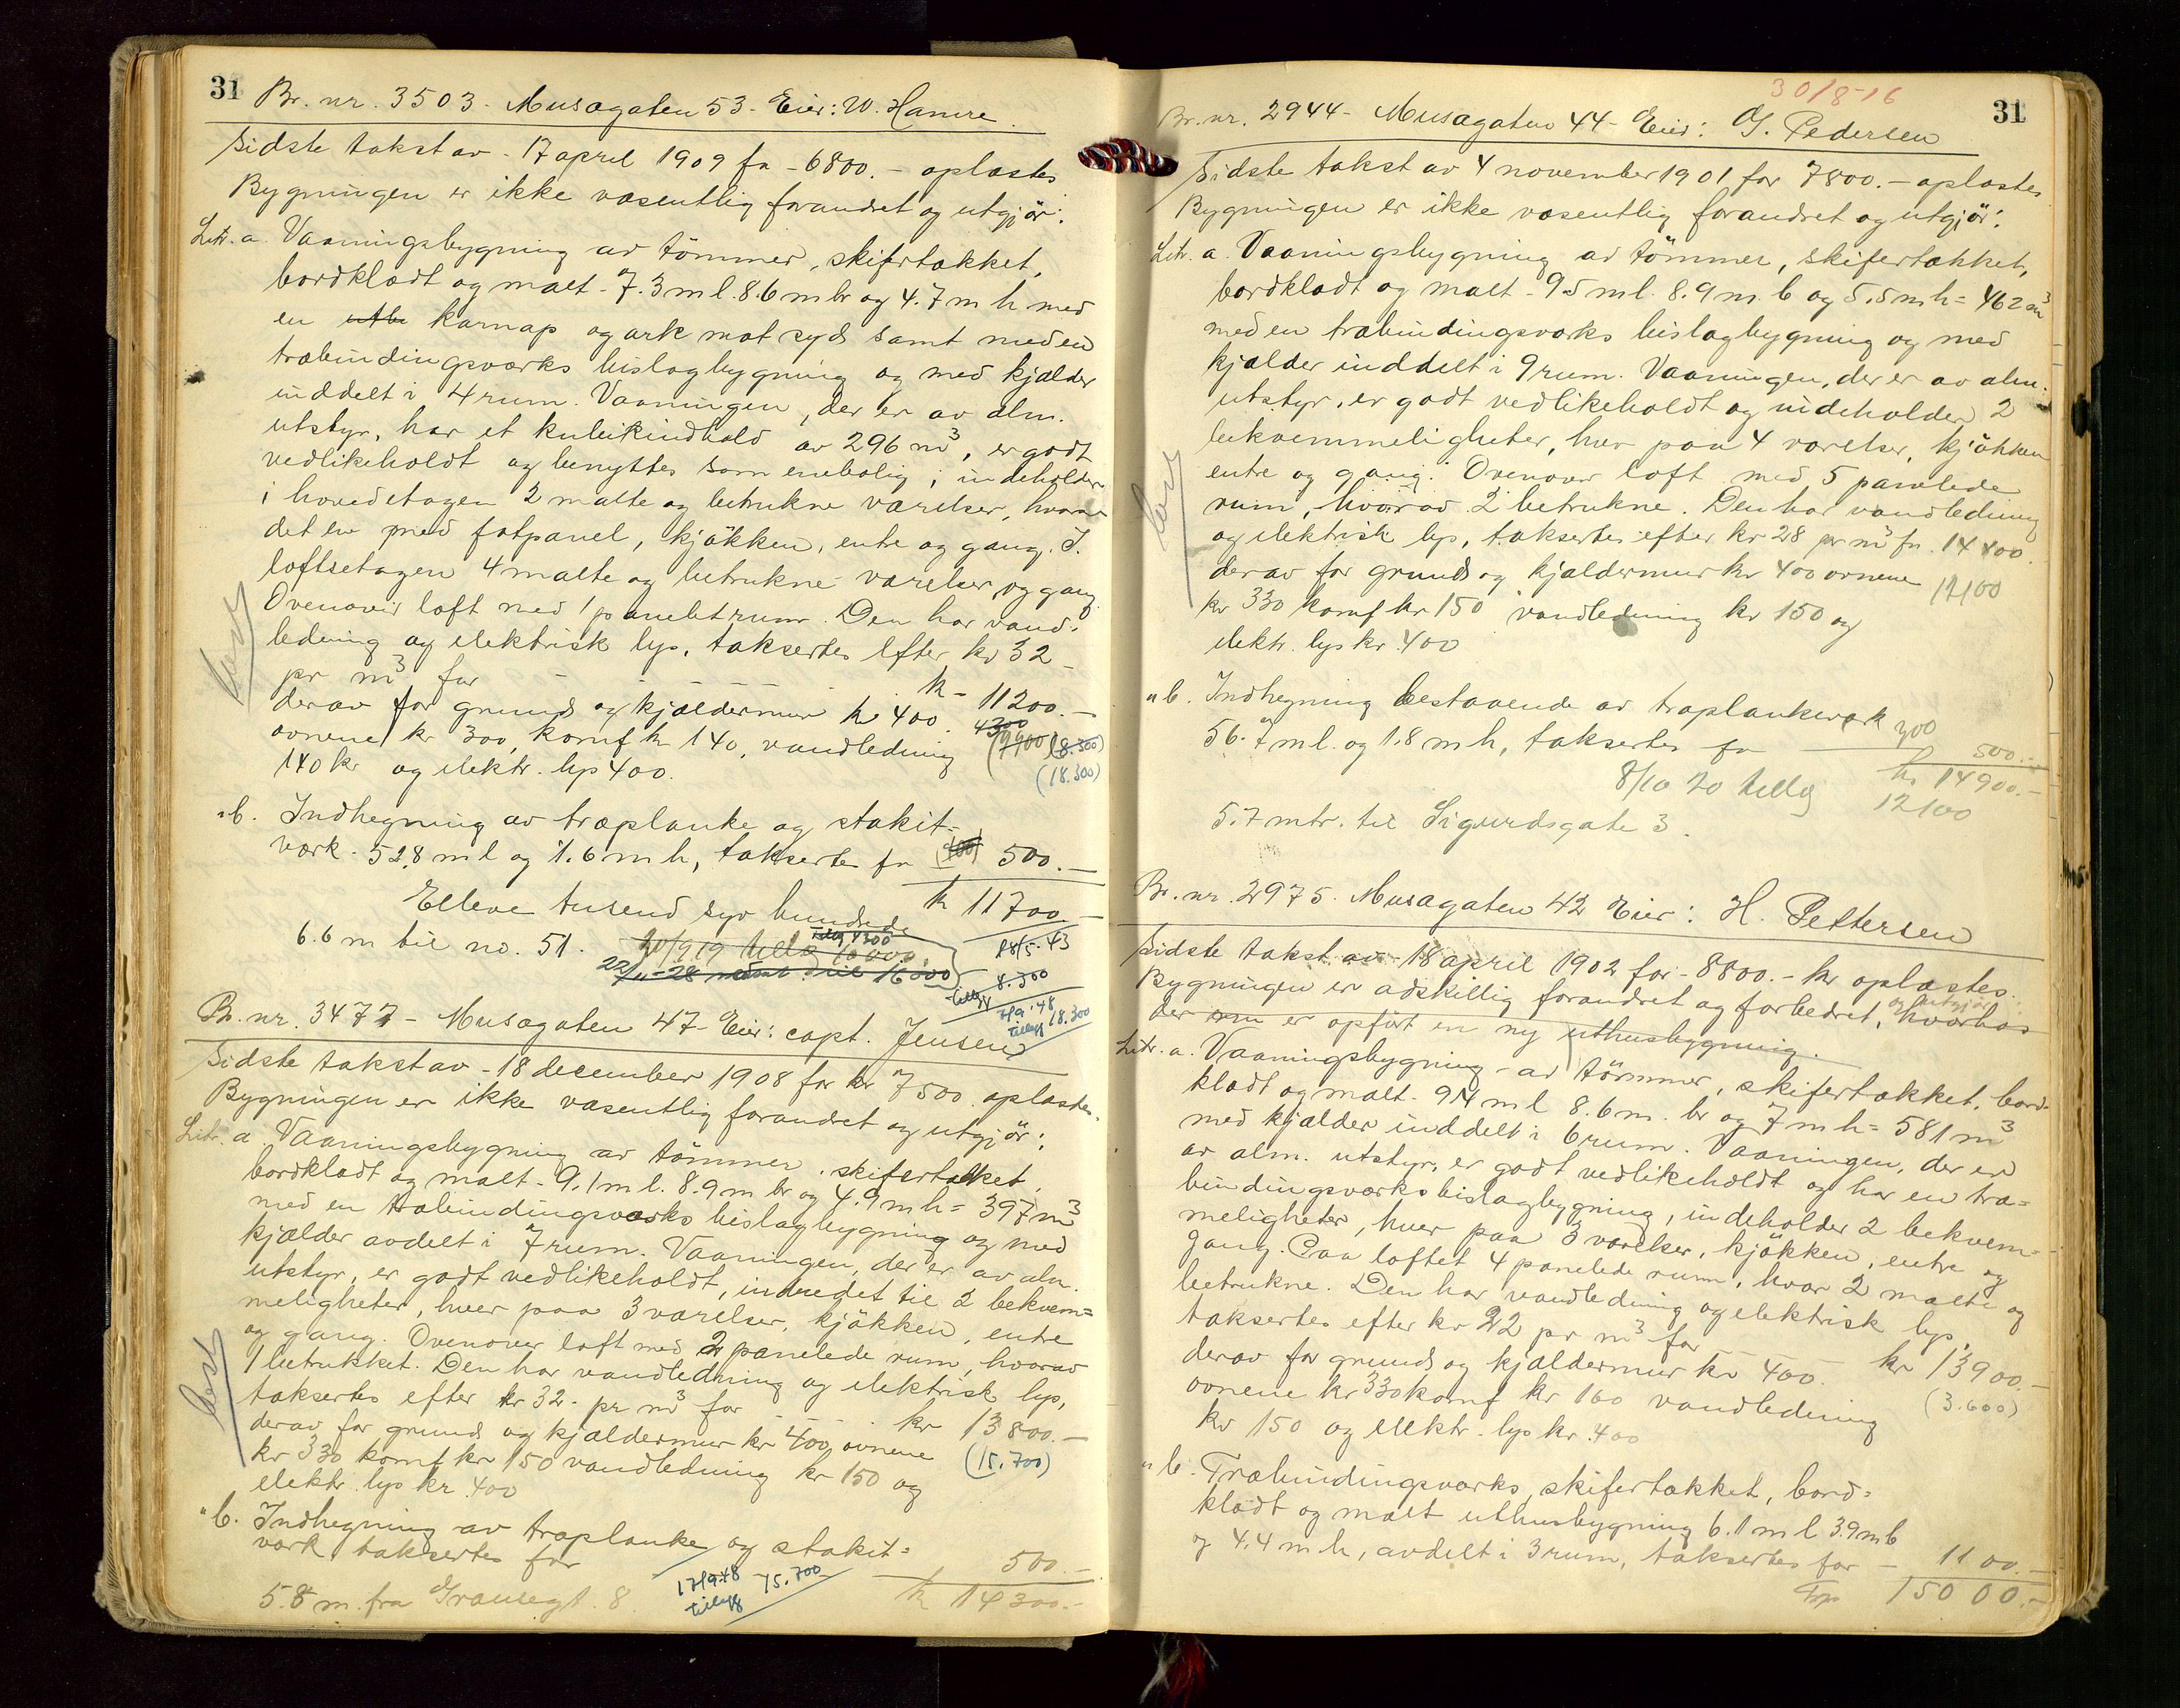 31
Br. nr. 3503 - Musægaten 53 - Eier: W. Hamre.
Sidste takst av - 17 april 1909 fr - 6800. - oplæstes
Bygningen er ikke væsentlig forandret og utgjør:
Litr. a. Vaaningsbygning av tømmer, skifertækket,
bordklædt og malt - 7.3 m l. 8.6 m br og 4.7 m h med
en karnap og ark mot syd samt med en
træbindingsværks bislagbygning og med kjælder
inddelt i 4 rum. Vaaningen, der er av alm.
utstyr, har et kubikindhold av 296 m³, er godt
vedlikeholdt og benyttes som enebolig; indeholder
i hovedetagen 2 malte og betrukne værelser, hvorav
det ene med fotpanel, kjøkken, entre og gang. I
loftsetagen 4 malte og betrukne værelser og gang.
Ovenover loft med 1 panelet rum. Den har vand-
ledning og elektrisk lys, taksertes efter kr 32 -
pr m³ for - - - - - k - 11200. -
derav for grund og kjældermur kr 400. 4300
ovnene kr 300, komf kr 140, vandledning (7900) (8.300)
140 kr og elektr. lys 400. (18.300)
" b. Indhegning av træplanke og stakit=
værk - 52.8 m l og 1.6 m h, taksertes fr (400) 500. -
Elleve tusend syv hundrede k 11700. -
6.6 m til no. 51. 20/9 19 tillæg 10000.
tillæg 4300
22/11 - 28 nedsat til 16000
28/5-43
tillegg 8.300
17/9-48
tillegg 18.300
Br. nr. 3477 - Musægaten 47 - Eier: capt. Jensen
Sidste takst av - 18 december 1908 for kr 7500 oplæstes.
Bygningen er ikke væsentlig forandret og utgjør:
Litr. a. Vaaningsbygning av tømmer, skifertækket,
bordklædt og malt - 9.1 m l. 8.9 m br og 4.9 m h = 397 m³
med en træbindingsværks bislagbygning og med
kjælder avdelt i 7 rum. Vaaningen, der er av alm.
utstyr, er godt vedlikeholdt, indredet til 2 bekvem=
meligheter, hver paa 3 værelser, kjøkken, entre
og gang. Ovenover loft med 2 panelede rum, hvorav
1 betrukket. Den har vandledning og elektrisk lys,
taksertes efter kr 32 - pr m³ for - - - kr 13800. -
derav for grund og kjældermur kr 400, ovnene (15.700)
kr 330 komf kr 150 vandledning kr 150 og
elektr. lys kr. 400
" b. Indhegning av træplanke og stakit=
værk taksertes for 500. -
17/9-48 15.700
tillegg
k 14300. -
5.8 m. fra Gransegt. 8
30/8-16
31
Br. nr. 2944 - Musægaten 44 - Eier: G. Pedersen
Sidste takst av 4 november 1901 for 7800. - oplæstes
Bygningen er ikke væsentlig forandret og utgjør:
Litr. a. Vaaningsbygning av tømmer, skifertækket,
bordklædt og malt - 9.5 m l. 8.9 m. b og 5.5 m h = 462 m³
med en træbindingsværks bislagbygning og med
kjælder inddelt i 9 rum. Vaaningen, der er av alm.
utstyr, er godt vedlikeholdt og indeholder 2
bekvemmeligheter, hver paa 4 værelser, kjøkken
entre og gang. Ovenover loft med 5 panelede
rum, hvorav 2 betrukne. Den har vandledning
og elektrisk lys, taksertes efter kr 28 pr m³ fr. 14400.
derav for grund og kjældermur kr 400 ovnene 12100
kr 330 komf kr 150 vandledning kr 150 og
elektr. lys kr. 400
" b. Indhegning bestaaende av træplankeværk 300
56.7 m l. og 1.8 m h, taksertes fr 500. -
8/10 20 tillæg k 14900. -
12100
5.7 mtr. til Sigurdsgate 3.
Br. nr. 2975. Musægaten 42 Eier: H. Pettersen
Sidste takst av - 18 april 1902 for - 8800. - kr oplæstes.
Bygningen er adskillig forandret og forbedret, hvorhos og utgjør
der er opført en ny uthusbygning.
Litr. a. Vaaningsbygning - av tømmer, skifertækket, bord-
klædt og malt - 9.4 m l 8.6 m. br og 7 m h = 581 m³
med kjælder inddelt i 6 rum. Vaaningen, der er
av alm. utstyr, er godt vedlikeholdt og har en træ=
bindingsværks bislagbygning, indeholder 2 bekvem=
meligheter, hver paa 3 værelser, kjøkken, entre og
gang. Paa loftet 4 panelede rum, hvor 2 malte og
betrukne. Den har vandledning og elektrisk lys,
taksertes efter kr 22 pr m³ for - - - kr 13900. -
derav for grund og kjældermur kr 400. (3.600)
ovnene kr 330 komf kr 160 vandledning
kr 150 og elektr. lys kr. 400
" b. Træbindingsværks, skifertækket, bord=
klædt og malt uthusbygning 6.1 m l 3.9 m b
og 4.4 m h, avdelt i 3 rum, taksertes for - 1100. -
15000. -